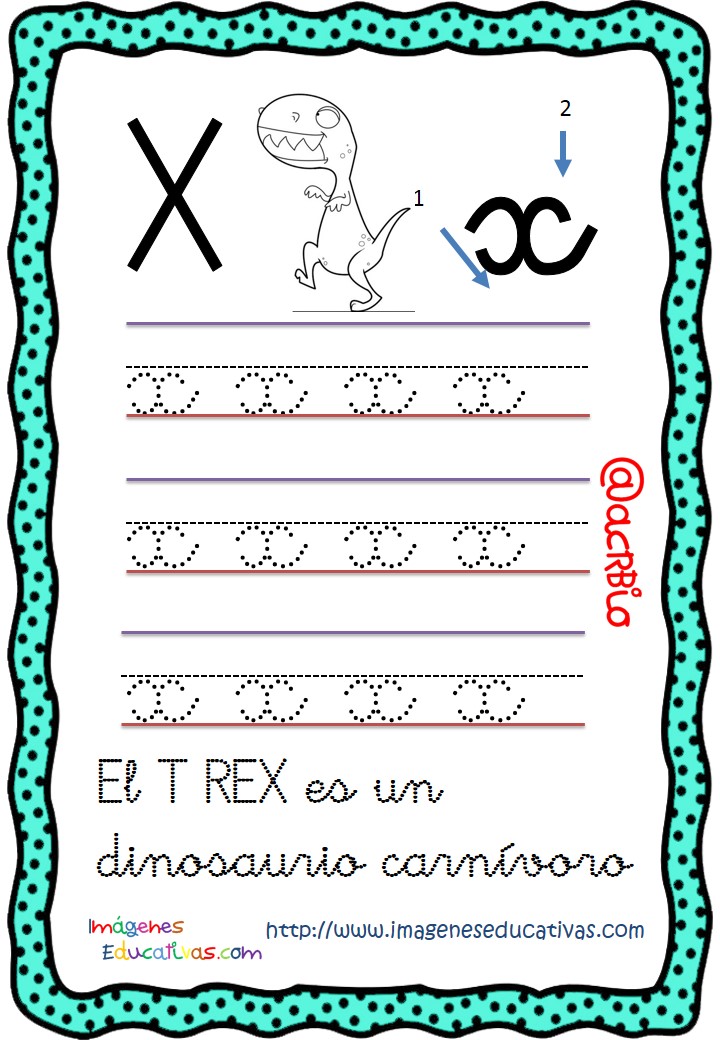 X
1
2
x
x x x x
x x x x
x x x x
@acrbio
El T REX es un
dinosaurio carnívoro
Imágenes
Educativas.com
http://www.imageneseducativas.com